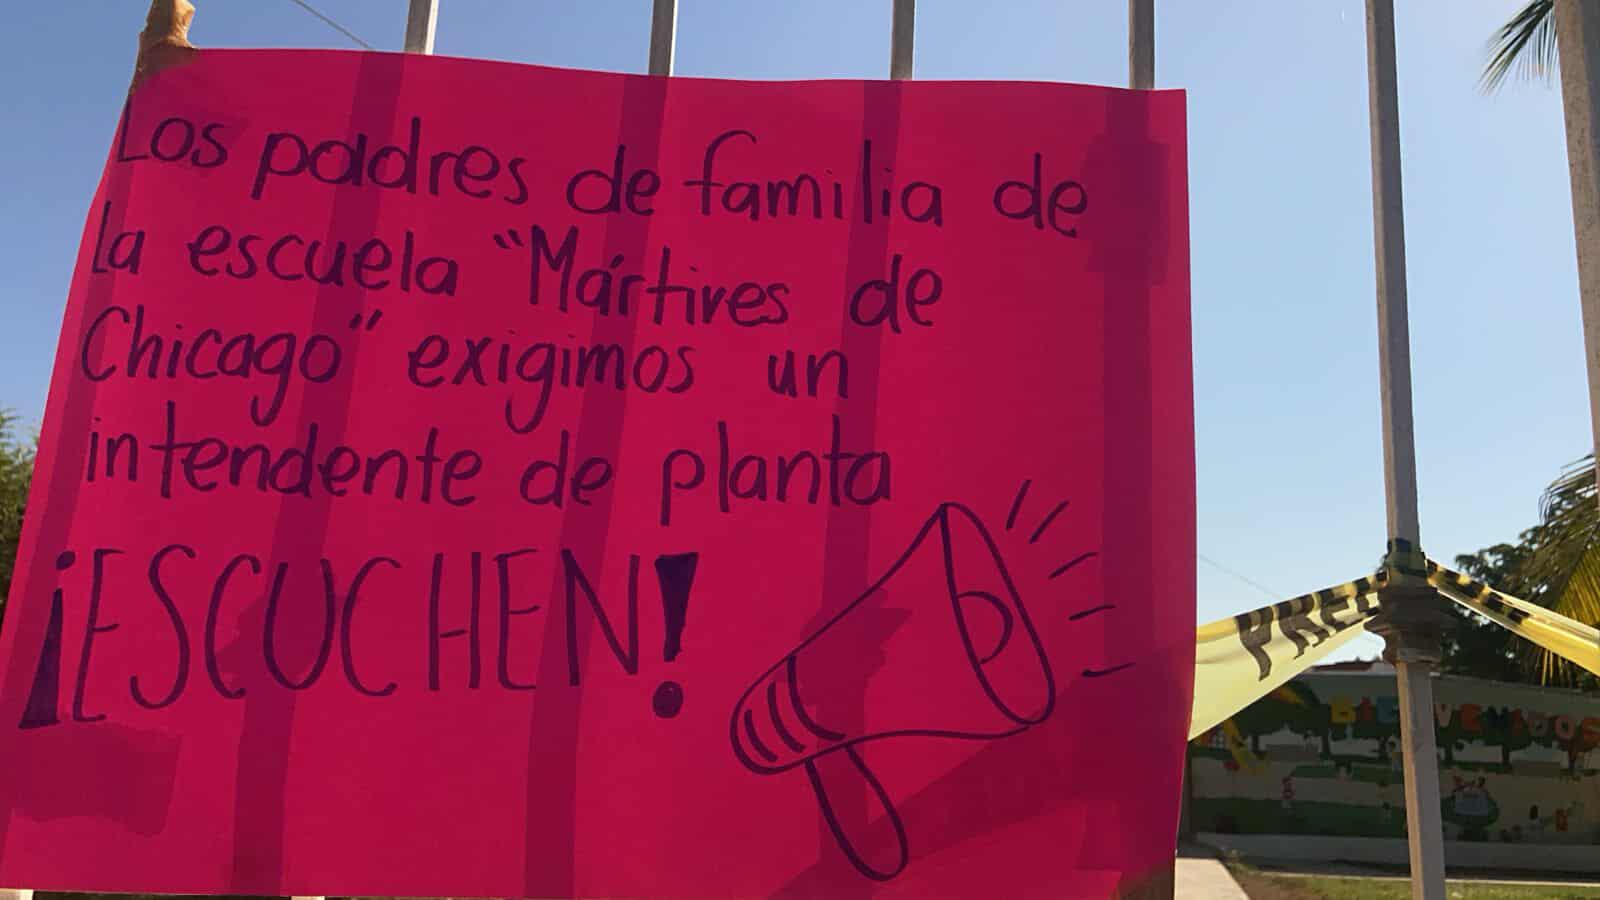 Los padres de familia de
la escuela "Mártires de
Chicago" exigimos un
intendente de planta
¡ESCUCHEN!
BIENVENIDOS